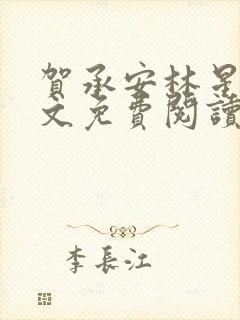 賀承安林星
文免費閱讀
李長江